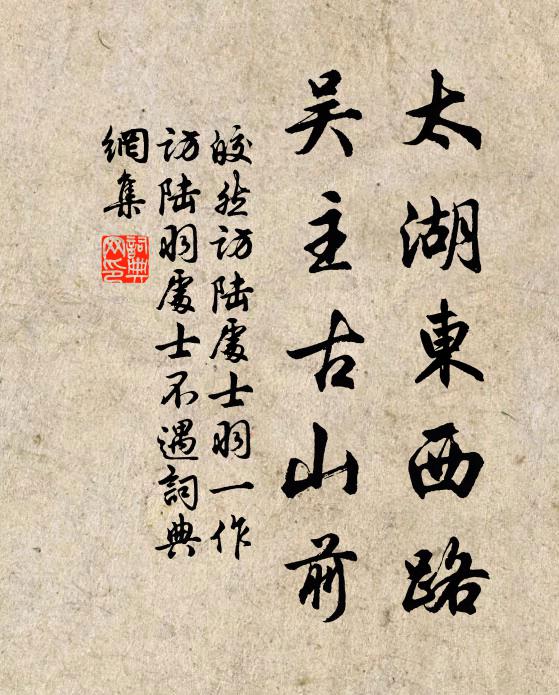 太湖東西路
吳主古山前
皎然訪陸處士羽一作
訪陸羽處士不遇詞典
網集
詞典
网印